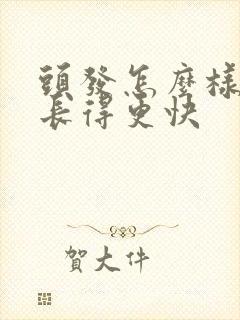 頭發怎麼樣
長得更快
賀大件